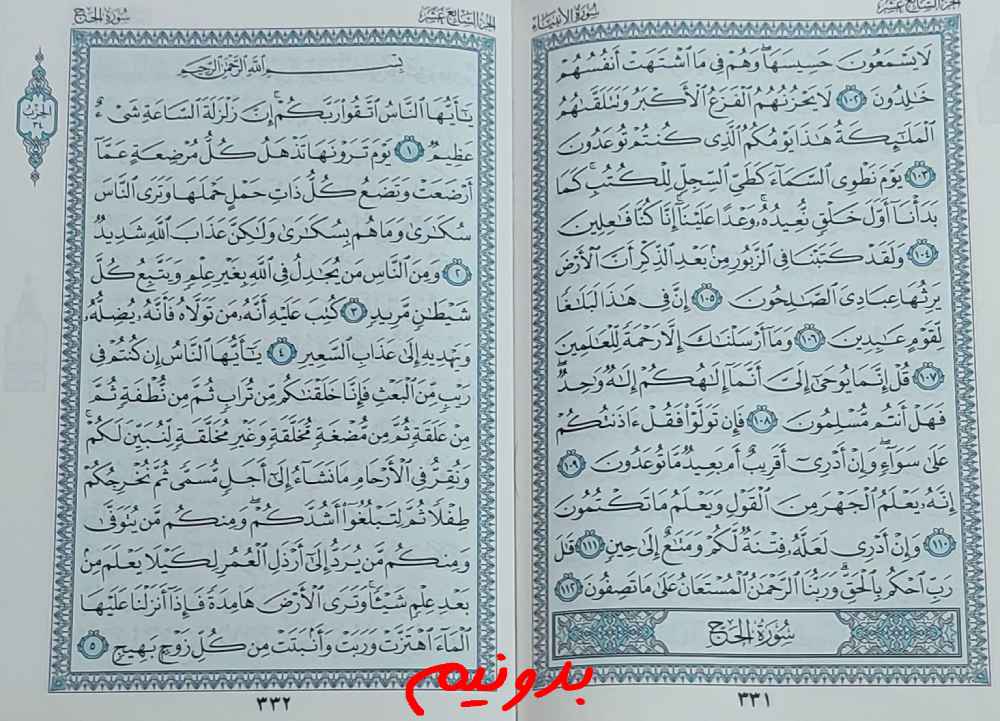 الجزء السابع عشر سورة الأنبياء
لَا يَسْمَعُونَ حَسِيسَهَا ۖ وَهُمْ فِي مَا ٱشْتَهَتْ أَنفُسُهُمْ
خَٰلِدُونَ ١٠٢ لَا يَحْزُنُهُمُ ٱلْفَزَعُ ٱلْأَكْبَرُ وَتَتَلَقَّىٰهُمُ
ٱلْمَلَٰٓئِكَةُ هَٰذَا يَوْمُكُمُ ٱلَّذِي كُنتُمْ تُوعَدُونَ
١٠٣ يَوْمَ نَطْوِي ٱلسَّمَآءَ كَطَيِّ ٱلسِّجِلِّ لِلْكُتُبِ ۚ كَمَا
بَدَأْنَآ أَوَّلَ خَلْقٍ نُّعِيدُهُۥ ۚ وَعْدًا عَلَيْنَآ ۚ إِنَّا كُنَّا فَٰعِلِينَ
١٠٤ وَلَقَدْ كَتَبْنَا فِي ٱلزَّبُورِ مِنۢ بَعْدِ ٱلذِّكْرِ أَنَّ ٱلْأَرْضَ
يَرِثُهَا عِبَادِيَ ٱلصَّٰلِحُونَ ١٠٥ إِنَّ فِي هَٰذَا لَبَلَٰغًا
لِّقَوْمٍ عَٰبِدِينَ ١٠٦ وَمَآ أَرْسَلْنَٰكَ إِلَّا رَحْمَةً لِّلْعَٰلَمِينَ
١٠٧ قُلْ إِنَّمَا يُوحَىٰٓ إِلَيَّ أَنَّمَآ إِلَٰهُكُمْ إِلَٰهٌ وَٰحِدٌ ۖ
فَهَلْ أَنتُم مُّسْلِمُونَ ١٠٨ فَإِن تَوَلَّوْا۟ فَقُلْ ءَاذَنتُكُمْ
عَلَىٰ سَوَآءٍ ۖ وَإِنْ أَدْرِىٓ أَقَرِيبٌ أَم بَعِيدٌ مَّا تُوعَدُونَ ١٠٩
إِنَّهُۥ يَعْلَمُ ٱلْجَهْرَ مِنَ ٱلْقَوْلِ وَيَعْلَمُ مَا تَكْتُمُونَ
١١٠ وَإِنْ أَدْرِى لَعَلَّهُۥ فِتْنَةٌ لَّكُمْ وَمَتَٰعٌ إِلَىٰ حِينٍ ١١١ قَٰلَ
رَبِّ ٱحْكُم بِٱلْحَقِّ ۗ وَرَبُّنَا ٱلرَّحْمَٰنُ ٱلْمُسْتَعَانُ عَلَىٰ مَا تَصِفُونَ ١١٢
سُورَةُ الحَجِّ
٣٣١
الجزء السابع عشر سورة الحج
بِسْمِ ٱللَّهِ ٱلرَّحْمَٰنِ ٱلرَّحِيمِ
يَٰٓأَيُّهَا ٱلنَّاسُ ٱتَّقُوا۟ رَبَّكُمْ ۚ إِنَّ زَلْزَلَةَ ٱلسَّاعَةِ شَىْءٌ
عَظِيمٌ ١ يَوْمَ تَرَوْنَهَا تَذْهَلُ كُلُّ مُرْضِعَةٍ عَمَّآ
أَرْضَعَتْ وَتَضَعُ كُلُّ ذَاتِ حَمْلٍ حَمْلَهَا وَتَرَى ٱلنَّاسَ
سُكَٰرَىٰ وَمَا هُم بِسُكَٰرَىٰ وَلَٰكِنَّ عَذَابَ ٱللَّهِ شَدِيدٌ
٢ وَمِنَ ٱلنَّاسِ مَن يُجَٰدِلُ فِي ٱللَّهِ بِغَيْرِ عِلْمٍ وَيَتَّبِعُ كُلَّ
شَيْطَٰنٍ مَّرِيدٍ ٣ كُتِبَ عَلَيْهِ أَنَّهُۥ مَن تَوَلَّاهُ فَأَنَّهُۥ يُضِلُّهُۥ
وَيَهْدِيهِ إِلَىٰ عَذَابِ ٱلسَّعِيرِ ٤ يَٰٓأَيُّهَا ٱلنَّاسُ إِن كُنتُمْ فِي
رَيْبٍ مِّنَ ٱلْبَعْثِ فَإِنَّا خَلَقْنَٰكُم مِّن تُرَابٍ ثُمَّ مِن نُّطْفَةٍ ثُمَّ
مِنْ عَلَقَةٍ ثُمَّ مِن مُّضْغَةٍ مُّخَلَّقَةٍ وَغَيْرِ مُخَلَّقَةٍ لِّنُبَيِّنَ لَكُمْ ۚ
وَنُقِرُّ فِي ٱلْأَرْحَامِ مَا نَشَآءُ إِلَىٰٓ أَجَلٍ مُّسَمًّى ثُمَّ نُخْرِجُكُمْ
طِفْلًا ثُمَّ لِتَبْلُغُوٓا۟ أَشُدَّكُمْ ۖ وَمِنكُم مَّن يُتَوَفَّىٰ
وَمِنكُم مَّن يُرَدُّ إِلَىٰٓ أَرْذَلِ ٱلْعُمُرِ لِكَيْلَا يَعْلَمَ مِنۢ
بَعْدِ عِلْمٍ شَيْـًٔا ۚ وَتَرَى ٱلْأَرْضَ هَامِدَةً فَإِذَآ أَنزَلْنَا عَلَيْهَا
ٱلْمَآءَ ٱهْتَزَّتْ وَرَبَتْ وَأَنۢبَتَتْ مِن كُلِّ زَوْجٍۭ بَهِيجٍ ٥
الحزب
٣٤
٣٣٢
بدونیم